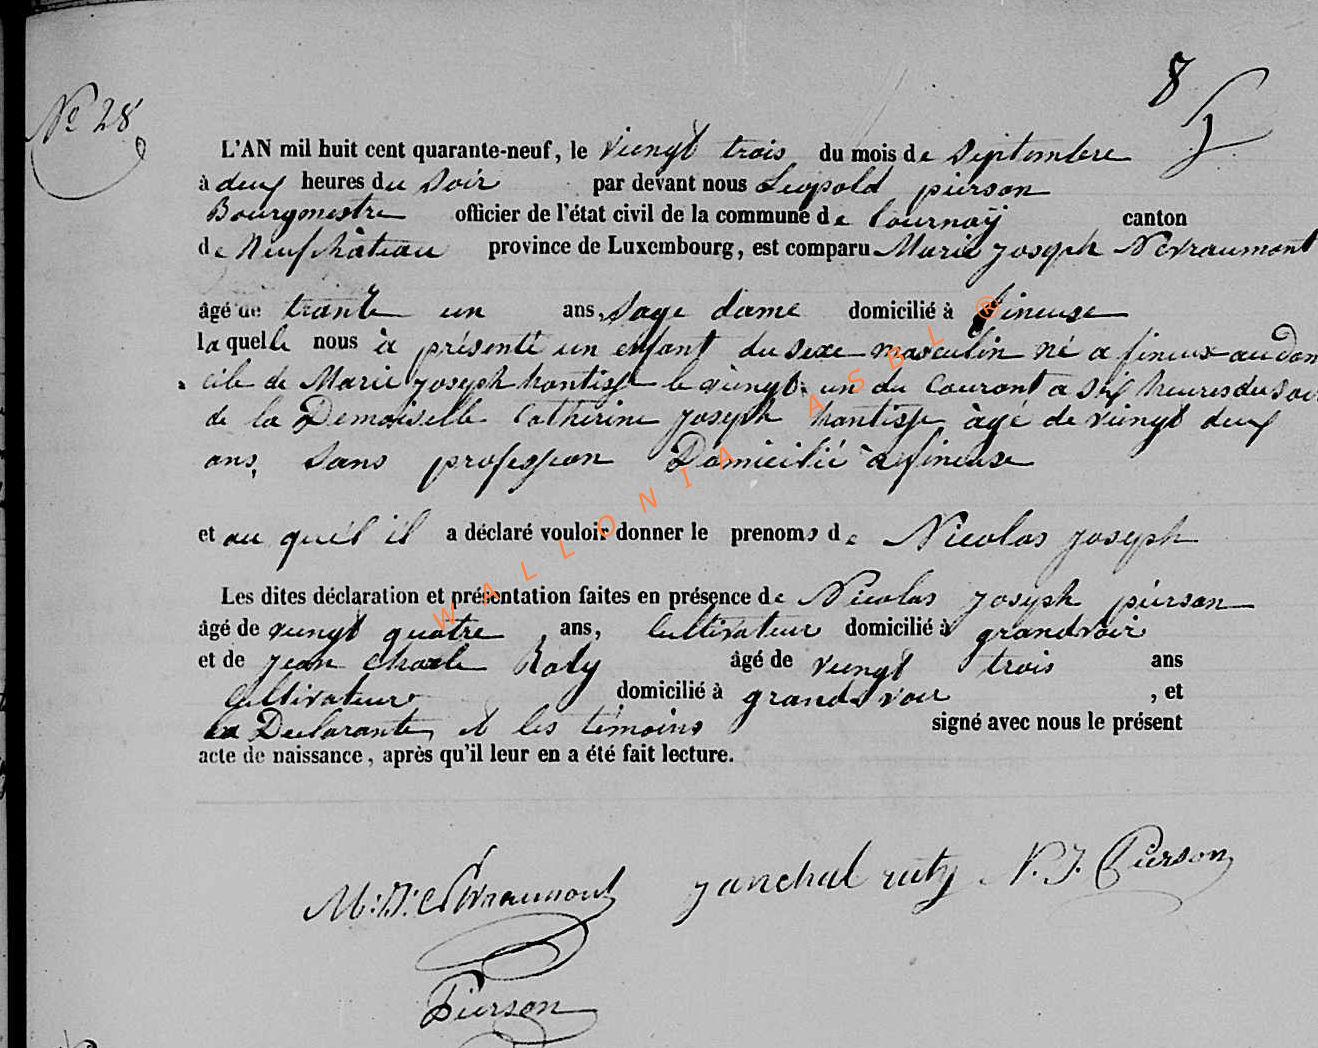 8
Nº 28
L'AN mil huit cent quarante-neuf, le viengt trois du mois de Septembre
à deux heures du Soir par devant nous Leopold pierson
Bourgmestre officier de l'état civil de la commune de tournay canton
de Neufchâteau province de Luxembourg, est comparu Marie joseph Nevraumont
âgé de trante un ans, Sage dame domicilié à fineuse
laquelle nous à présenté un enfant du sexe masculin né a fineux au Domi
cile de Marie joseph hantisse le viengt un du Courant a six heures du Soir
de la Demoiselle Catherine joseph hantisse àgé de viengt deux
ans, Sans profession Domicilié a fineuse
et au quel il a déclaré vouloir donner le prenoms de Nicolas joseph
Les dites déclaration et présentation faites en présence de Nicolas joseph pierson
âgé de viengt quatre ans, Cultivateur domicilié à grandvoir
et de jean charle Roty âgé de viengt trois ans
Cultivateur domicilié à grandvoir , et
la Declarante et les témoins signé avec nous le présent
acte de naissance, après qu'il leur en a été fait lecture.
M: J: Nevraumont janchal ruty N. J. Pierson
Pierson
WALLONIA ASBL ®